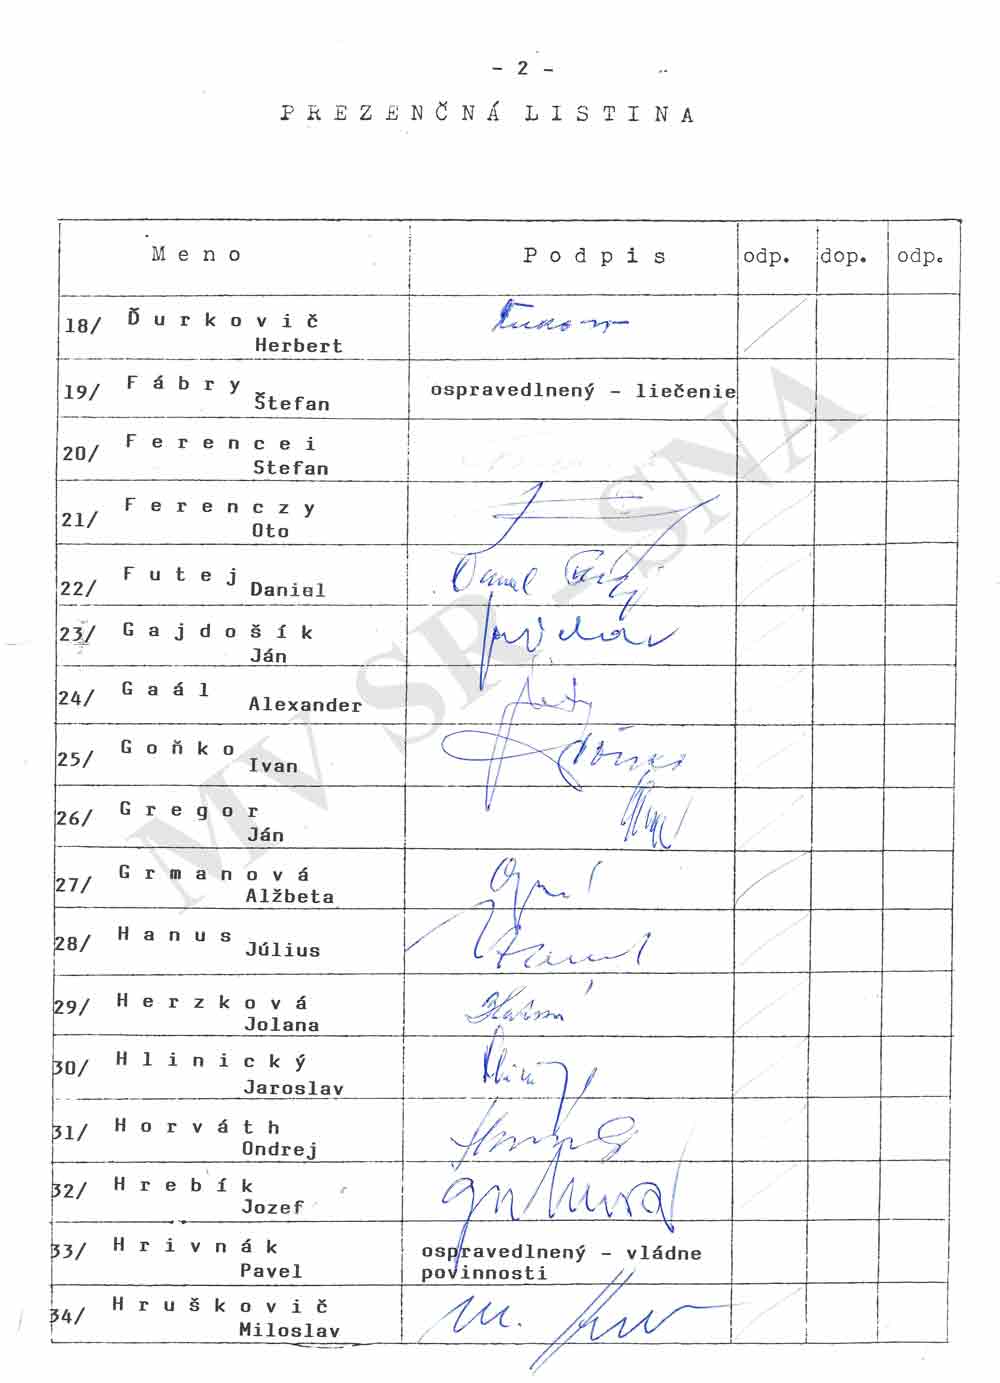 - 2 -
P R E Z E N Č N Á  L I S T I N A
M e n o  P o d p i s  odp.  dop.  odp.
18/ Ď u r k o v i č
Herbert
19/ F á b r y  ospravedlnený - liečenie
Štefan
20/ F e r e n c e i
Stefan
21/ F e r e n c z y
Oto
22/ F u t e j  Daniel  Daniel
23/ G a j d o š í k
Ján
24/ G a á l
Alexander
25/ G o ň k o
Ivan
26/ G r e g o r
Ján
27/ G r m a n o v á
Alžbeta
28/ H a n u s
Július
29/ H e r z k o v á
Jolana
30/ H l i n i c k ý
Jaroslav
31/ H o r v á t h
Ondrej
32/ H r e b í k
Jozef
33/ H r i v n á k  ospravedlnený - vládne
Pavel  povinnosti
34/ H r u š k o v i č  M.
Miloslav
MV SR - SNA